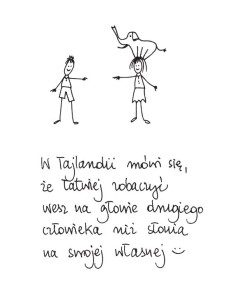 W Tajlandii mówi się,
że łatwiej zobaczyć
wesz na głowie drugiego
człowieka niż słonia
na swojej własnej